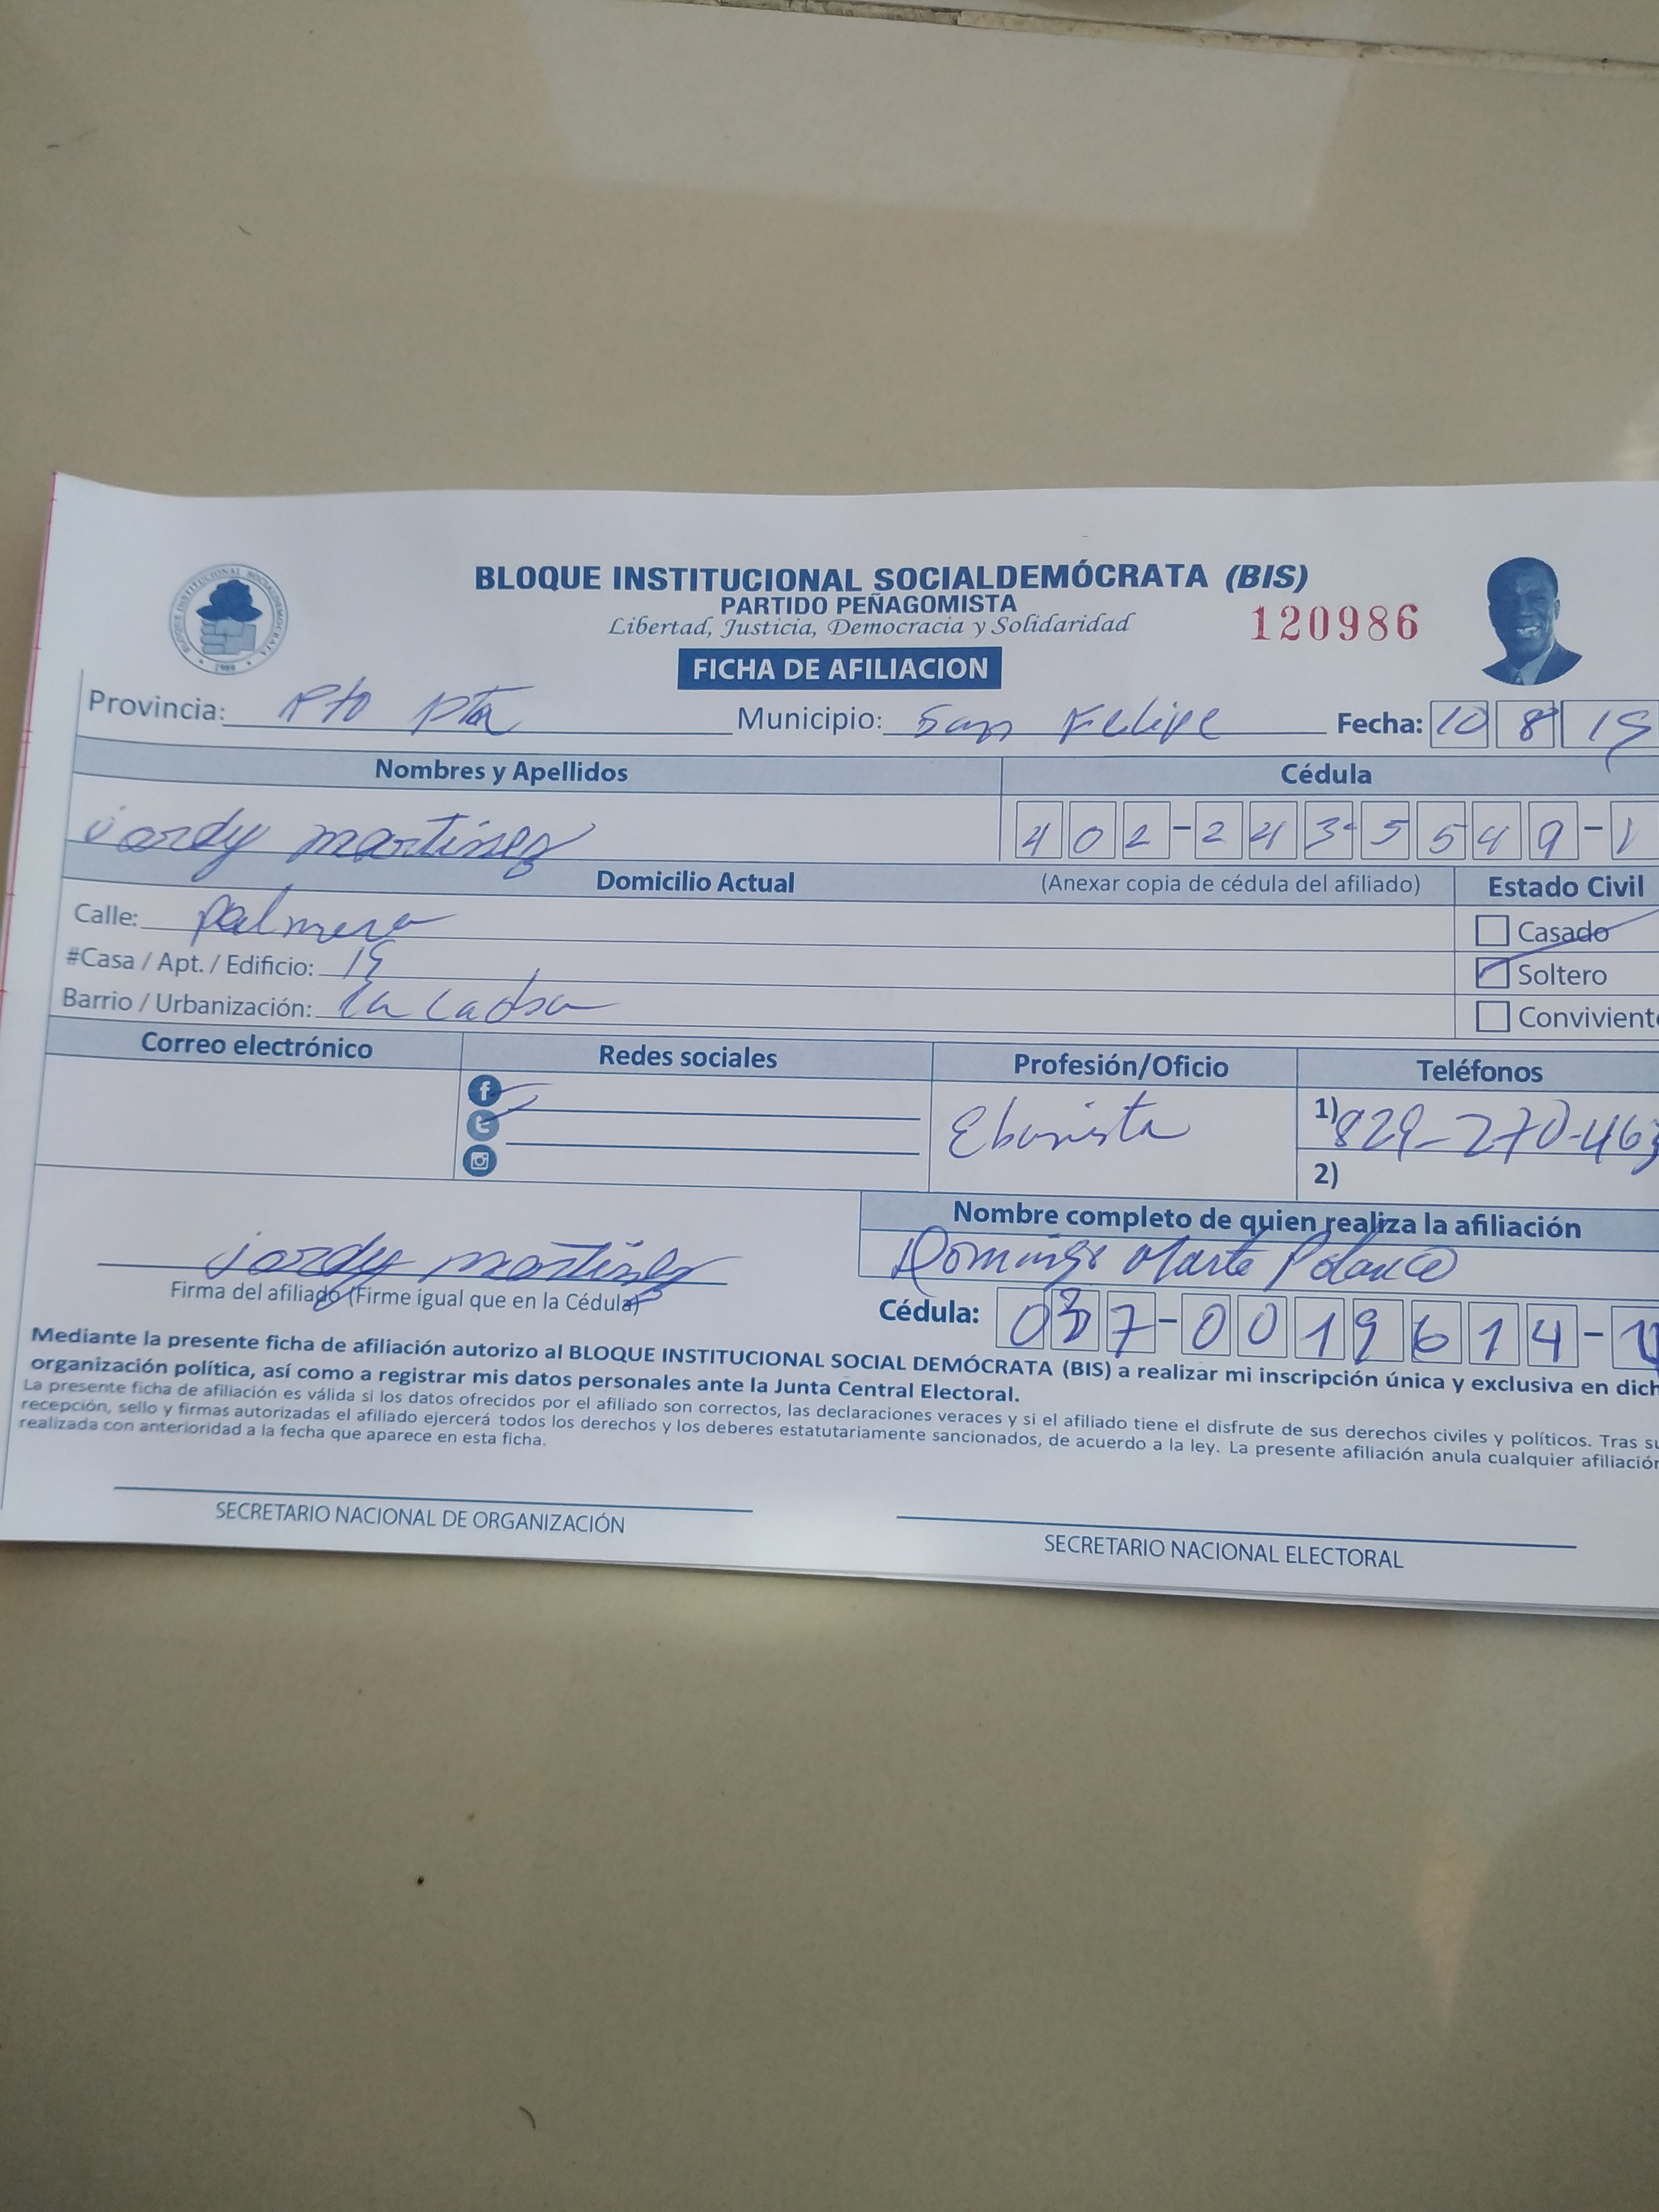 BLOQUE INSTITUCIONAL SOCIALDEMÓCRATA (BIS)
PARTIDO PEÑAGOMISTA
Libertad, Justicia, Democracia y Solidaridad
120986
FICHA DE AFILIACION
Provincia: Pto Pta Municipio: San Felipe Fecha: 10 8 19
Nombres y Apellidos Cédula
jordy martinez 402-2435549-1
Domicilio Actual (Anexar copia de cédula del afiliado) Estado Civil
Calle: palmera Casado
#Casa / Apt. / Edificio: 19 Soltero
Barrio / Urbanización: La Caoba Conviviente
Correo electrónico Redes sociales Profesión/Oficio Teléfonos
Ebanista 1) 829-270-463
2)
Nombre completo de quien realiza la afiliación
jordy martinez Domingo Marte Polanco
Firma del afiliado (Firme igual que en la Cédula) Cédula: 037-0019614-
Mediante la presente ficha de afiliación autorizo al BLOQUE INSTITUCIONAL SOCIAL DEMÓCRATA (BIS) a realizar mi inscripción única y exclusiva en dich
organización política, así como a registrar mis datos personales ante la Junta Central Electoral.
La presente ficha de afiliación es válida si los datos ofrecidos por el afiliado son correctos, las declaraciones veraces y si el afiliado tiene el disfrute de sus derechos civiles y políticos. Tras su
recepción, sello y firmas autorizadas el afiliado ejercerá todos los derechos y los deberes estatutariamente sancionados, de acuerdo a la ley. La presente afiliación anula cualquier afiliación
realizada con anterioridad a la fecha que aparece en esta ficha.
SECRETARIO NACIONAL DE ORGANIZACIÓN SECRETARIO NACIONAL ELECTORAL